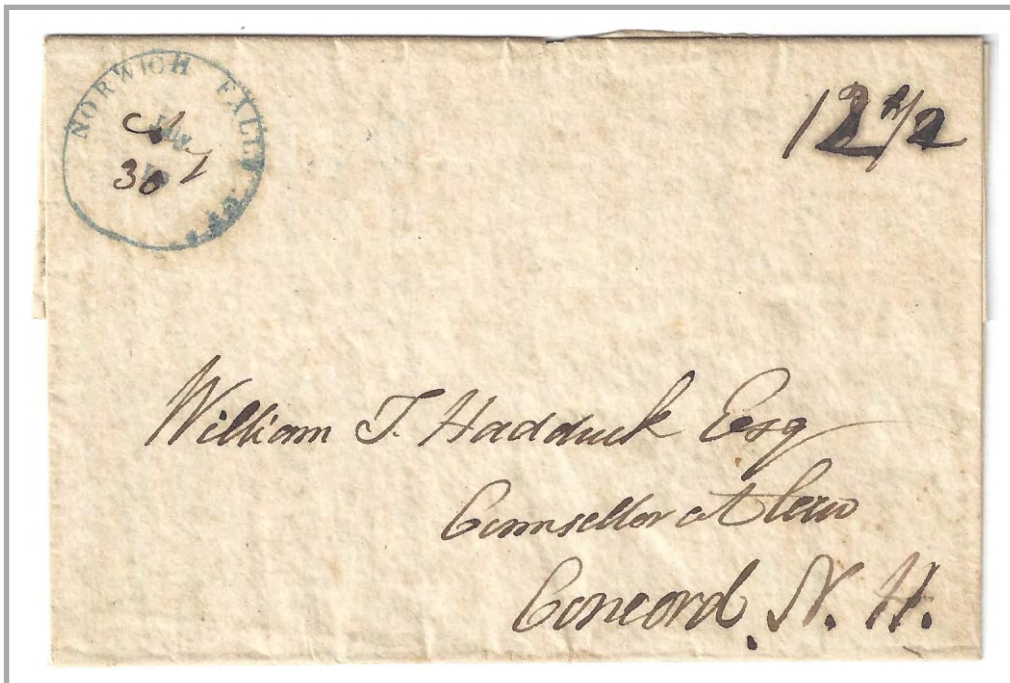 NORWICH FALLS
30
12 1/2
William T. Hadduck Esq
Counsellor at law
Concord. N. H.